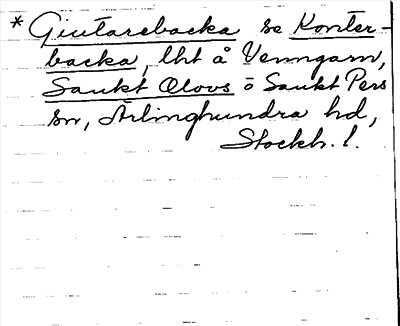 * Giutarebacka se Konter-
backa, lht å Venngarn,
Sankt Olovs o Sankt Pers
sn, Ärlinghundra hd,
Stockh. l.